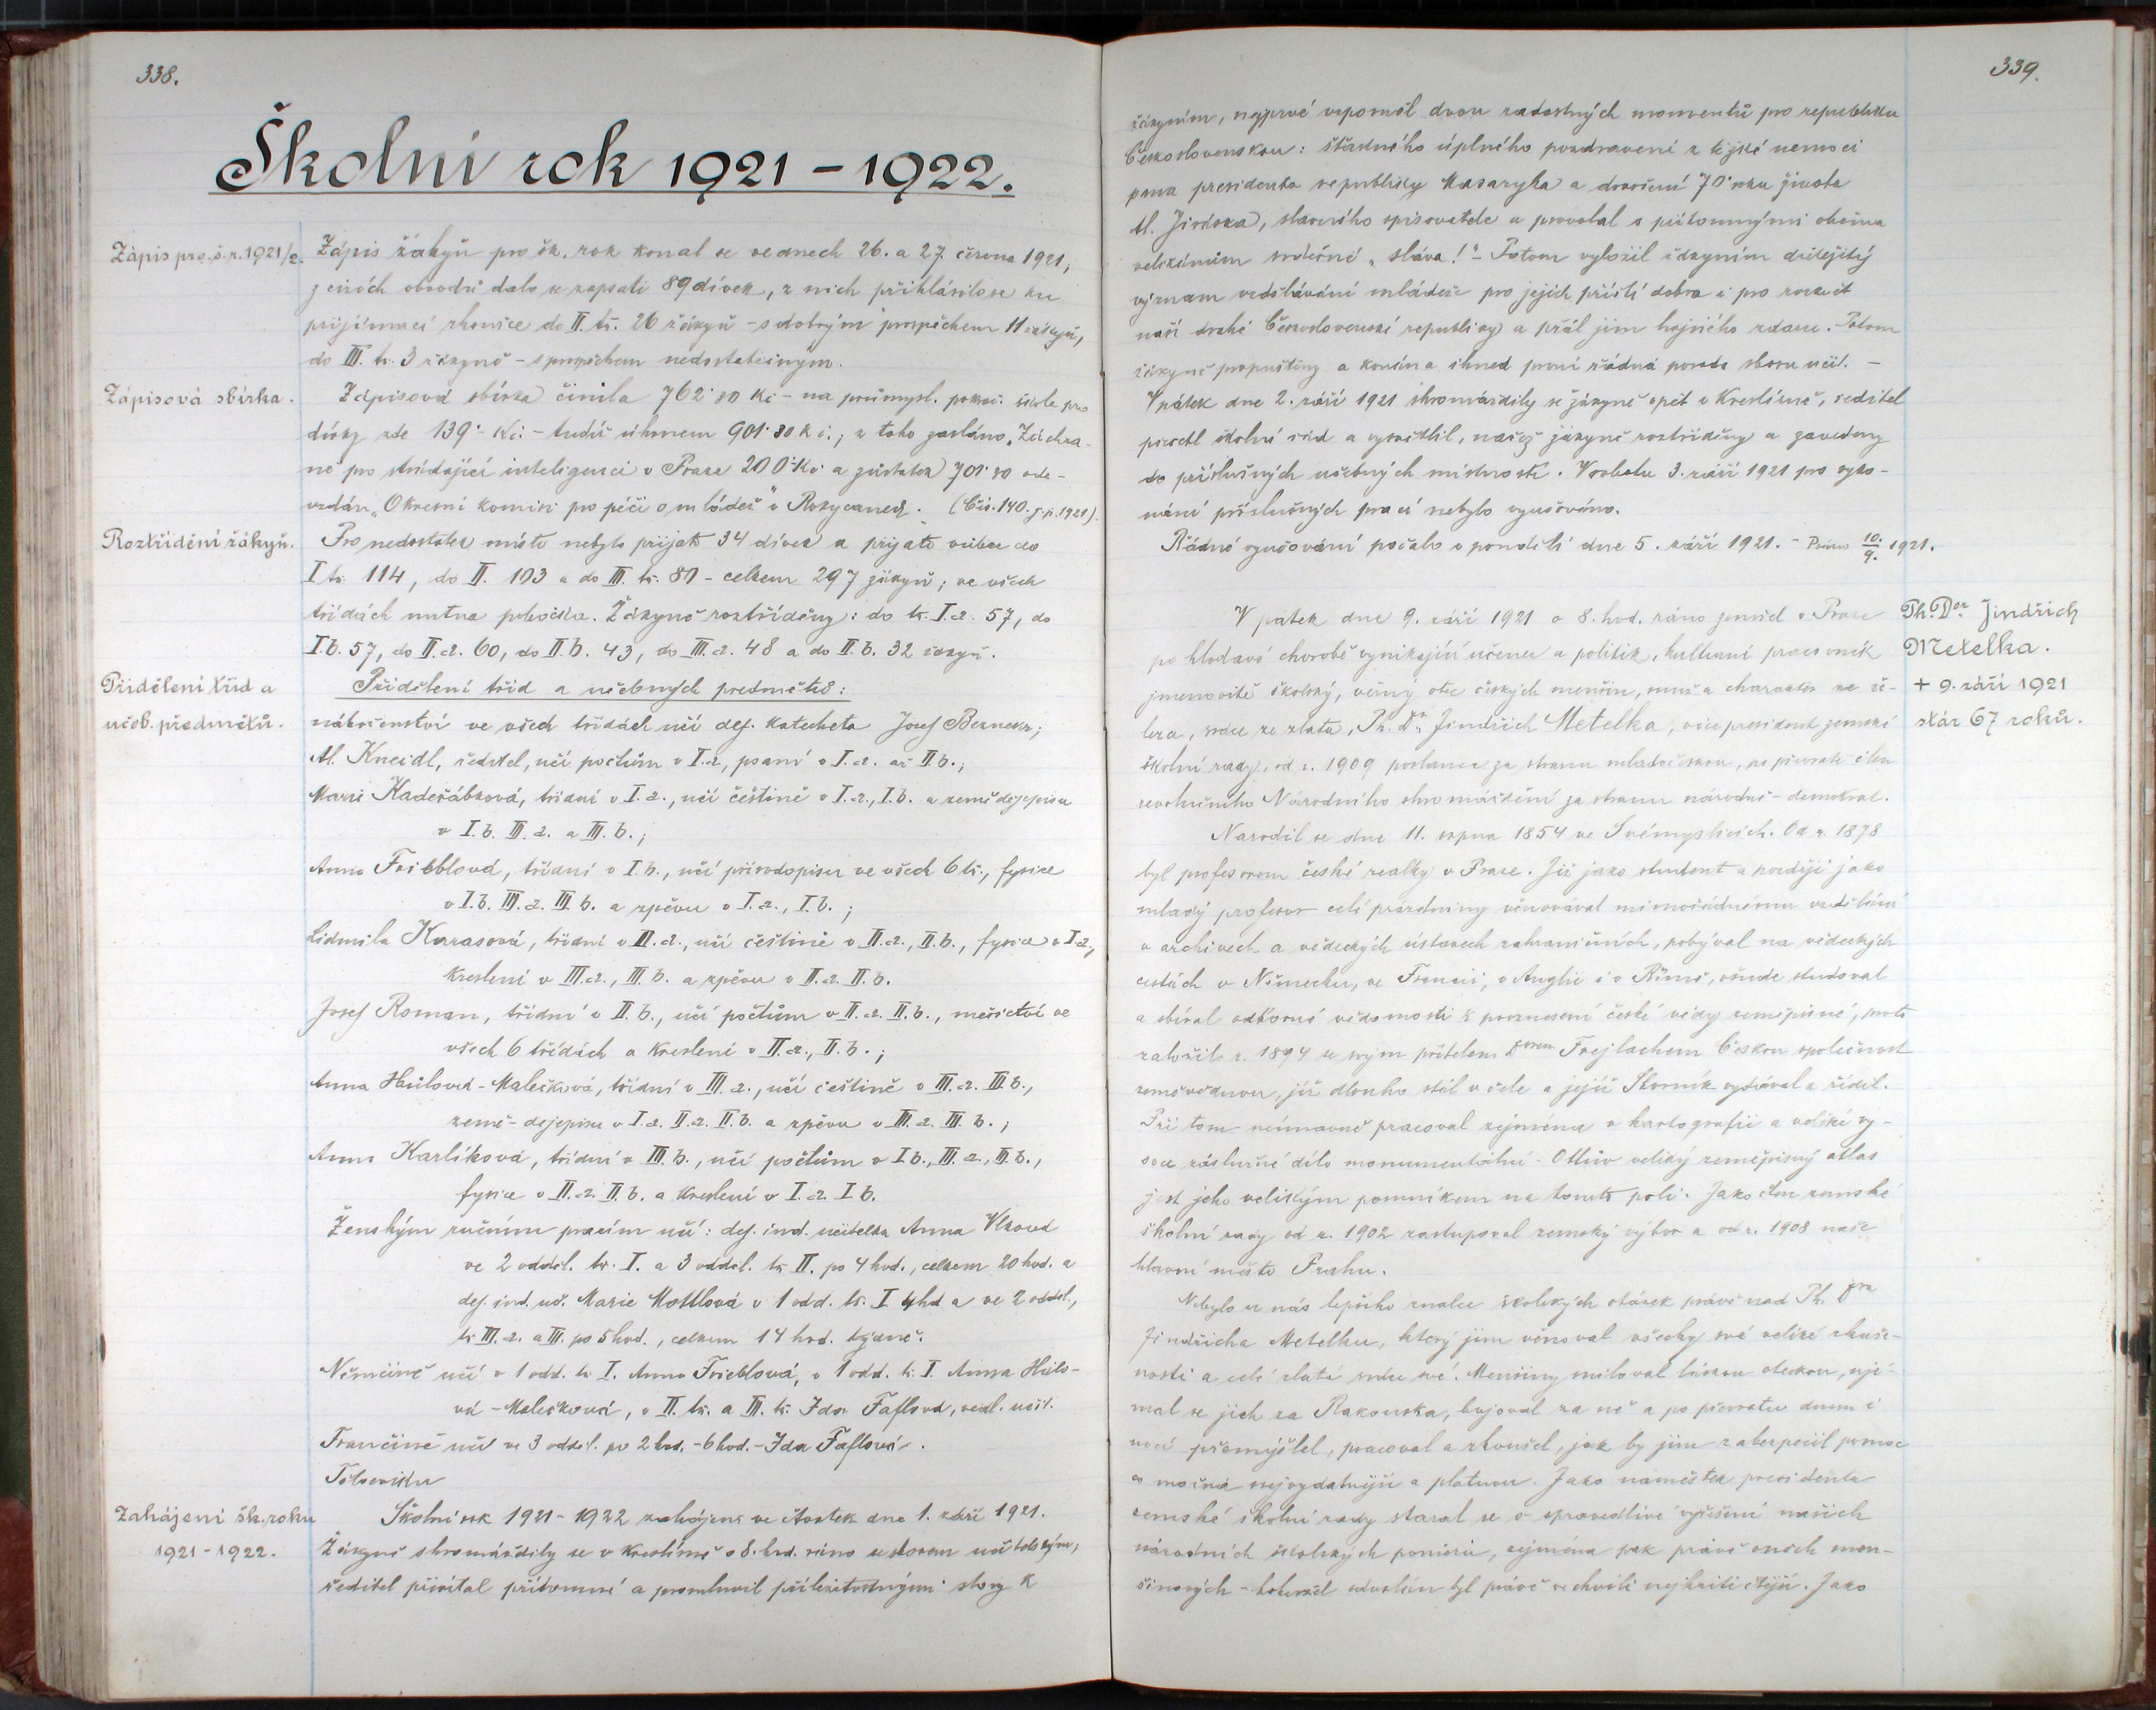 338.
Školní rok 1921 – 1922.
Zápis pro š. r. 1921/2.
Zápis žákyň pro šk. rok konal se ve dnech 26. a 27. června 1921,
z cizích obvodů dalo se zapsati 89 dívek, z nich přihlásilo se ku
přijímací zkoušce do II. tř. 26 žákyň – s dobrým prospěchem 11 žákyň,
do III. tř. 3 žákyně – s prospěchem nedostatečným.
Zápisová sbírka.
Zápisová sbírka činila 762·80 Kč – na průmysl. pokrač. škole pro
dívky zde 139·– Kč. – tudíž úhrnem 901·80 Kč.; z toho zasláno „Záchra-
ně pro strádající inteligenci v Praze 200·Kč a zůstatek 701·80 ode-
vzdán „Okresní komisi pro péči o mládež" v Rokycanech. (Čís. 140. j. p. 1921).
Roztřídění žákyň.
Pro nedostatek místa nebylo přijato 34 dívek a přijato vůbec do
I tř. 114, do II. 103 a do III. tř. 80 – celkem 297 žákyň; ve všech
třídách nutna pobočka. Žákyně roztříděny: do tř. I.a. 57, do
I.b. 57, do II.a. 60, do II.b. 43, do III.a. 48 a do II.b. 32 žákyň.
Přidělení tříd a
učeb. předmětů.
Přidělení tříd a učebných předmětů:
náboženství ve všech třídách učí def. katecheta Josef Bernesz;
Al. Kneidl, ředitel, učí počtům v I.a, psaní v I.a. až II.b.;
Marie Kadeřábková, třídní v I.a., učí češtině v I.a., I.b. a zemědějepisu
v I.b. III.a. a III.b.;
Anna Frieblová, třídní v I.b., učí přírodopisu ve všech 6 tř., fysice
v I.b. III.a. III.b. a zpěvu v I.a., I.b.;
Lidmila Karasová, třídní v II.a., učí češtině v II.a., II.b., fysice v I.a,
kreslení v III.a., III.b. a zpěvu v II.a. II.b.
Josef Roman, třídní v II.b., učí počtům v II.a. II.b., měřictví ve
všech 6 třídách a kreslení v II.a., II.b.;
Anna Hůlová-Malečková, třídní v III.a., učí češtině v III.a. III.b.,
země-dějepisu v I.a. II.a. II.b. a zpěvu v III.a. III.b.;
Anna Karlíková, třídní v III.b., učí počtům v I.b., III.a., III.b.,
fysice v II.a. II.b. a kreslení v I.a. I b.
Ženským ručním pracím učí: def. ind. učitelka Anna Vlková
ve 2 odděl. tř. I. a 3 odděl. tř. II. po 4 hod., celkem 20 hod. a
def. ind. uč. Marie Mottlová v 1 odd. tř. I 4 hd a ve 2 odděl.,
tř III.a. a III. po 5 hod., celkem 14 hod. týdně.
Němčině učí v 1 odd. tř. I. Anna Frieblová, v 1 odd. tř. I. Anna Hůlo-
vá – Malečková, v II. tř. a III. tř. Ida Faflová, vedl. učit.
Frančině učí ve 3 odděl. po 2 hod. – 6 hod. – Ida Faflová.
Tělocviku
Zahájení šk. roku
1921 - 1922.
Školní rok 1921 – 1922 zahájen ve čtvrtek dne 1. září 1921.
Žákyně shromáždily se v kreslírně o 8. hod. ráno se sborem učitelským;
ředitel přivítal přítomné a promluvil příležitostnými slovy k
339.
žákyním, nejprvé vzpomněl dvou radostných momentů pro republiku
Československou: šťastného úplného pozdravení z těžké nemoci
pana presidenta republiky Masaryka a dovršení 70 roku života
Al. Jiráska, slavného spisovatele a provolal s přítomnými oběma
velikánům srdečné „sláva!" – Potom vyložil žákyním důležitý
význam vzdělávání mládeže pro jejich příští dobro i pro rozkvět
naší drahé Československé republiky a přál jim hojného zdaru. Potom
žákyně propuštěny a konána ihned první řádná porada sboru učit. –
V pátek dne 2. září 1921 shromáždily se žákyně opět v kreslírně, ředitel
přečetl školní řád a vysvětlil, načež žákyně roztříděny a zavedeny
do příslušných učebných místností. V sobotu 3. září 1921 pro vyko-
nání příslušných prací nebylo vyučováno.
Řádné vyučování počalo v pondělí dne 5. září 1921. – Psáno 10./9. 1921.
Ph. Dor. Jindřich
Metelka.
+ 9. září 1921
stár 67 roků.
V pátek dne 9. září 1921 o 8. hod. ráno zemřel v Praze
po hlodavé chorobě vynikající učenec a politik, kulturní pracovník
jmenovitě školský, věrný otec českých menšin, muž a charakter ze že-
leza, srdce ze zlata, Ph. Dr. Jindřich Metelka, vicepresident zemské
školní rady, od r. 1909 poslanec za stranu mladočeskou, po převratu člen
revolučního Národního shromáždění za stranu národně-demokrat.
Narodil se dne 11. srpna 1854 ve Svémyslicích. Od r. 1878
byl profesorem české reálky v Praze. Již jako student a později jako
mladý profesor celé prázdniny věnovával mimořádnému vzdělání
v archivech a vědeckých ústavech zahraničních, pobýval na vědeckých
cestách v Německu, ve Francii, v Anglii i v Římě, všude studoval
a sbíral odborné vědomosti k povznesení české vědy zeměpisné, proto
založil r. 1894 se svým přítelem Drem Frejlachem Českou společnost
zeměvědnou, jíž dlouho stál v čele a jejíž Sborník vydával a řídil.
Při tom neúnavně pracoval zejména v kartografii a veliké vy-
soce záslužné dílo monumentální – Ottův veliký zeměpisný atlas
jest jeho velikým pomníkem na tomto poli. Jako člen zemské
školní rady od r. 1902 zastupoval zemský výbor a od r. 1908 naše
hlavní město Prahu.
Nebylo u nás lepšího znalce školských otázek právě nad Ph. Dra
Jindřicha Metelku, který jim věnoval všechny své veliké zkuše-
nosti a celé zlaté srdce své. Menšiny miloval láskou oteckou, ují-
mal se jich za Rakouska, bojoval za ně a po převratu dnem i
nocí přemýšlel, pracoval a zkoušel, jak by jim zabezpečil pomoc
co možná nejvydatnější a platnou. Jako náměstek presidenta
zemské školní rady staral se o spravedlivé vyřešení našich
národních školských poměrů, zejména pak právě oněch men-
šinových – bohužel odvolán byl právě ve chvíli nejkritičtější. Jako